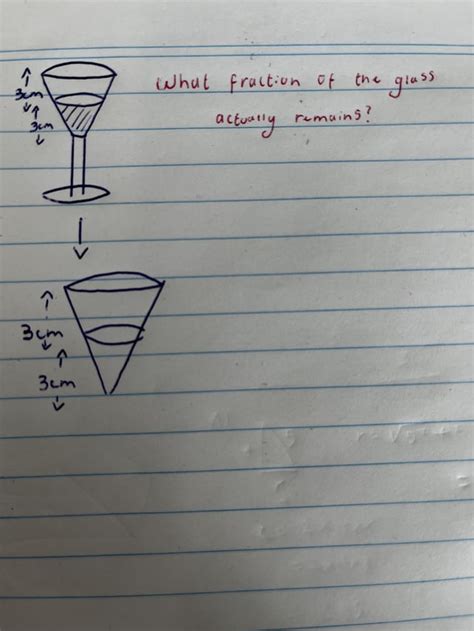 What fraction of the glass
3cm
actually remains?
3cm
3cm
3cm